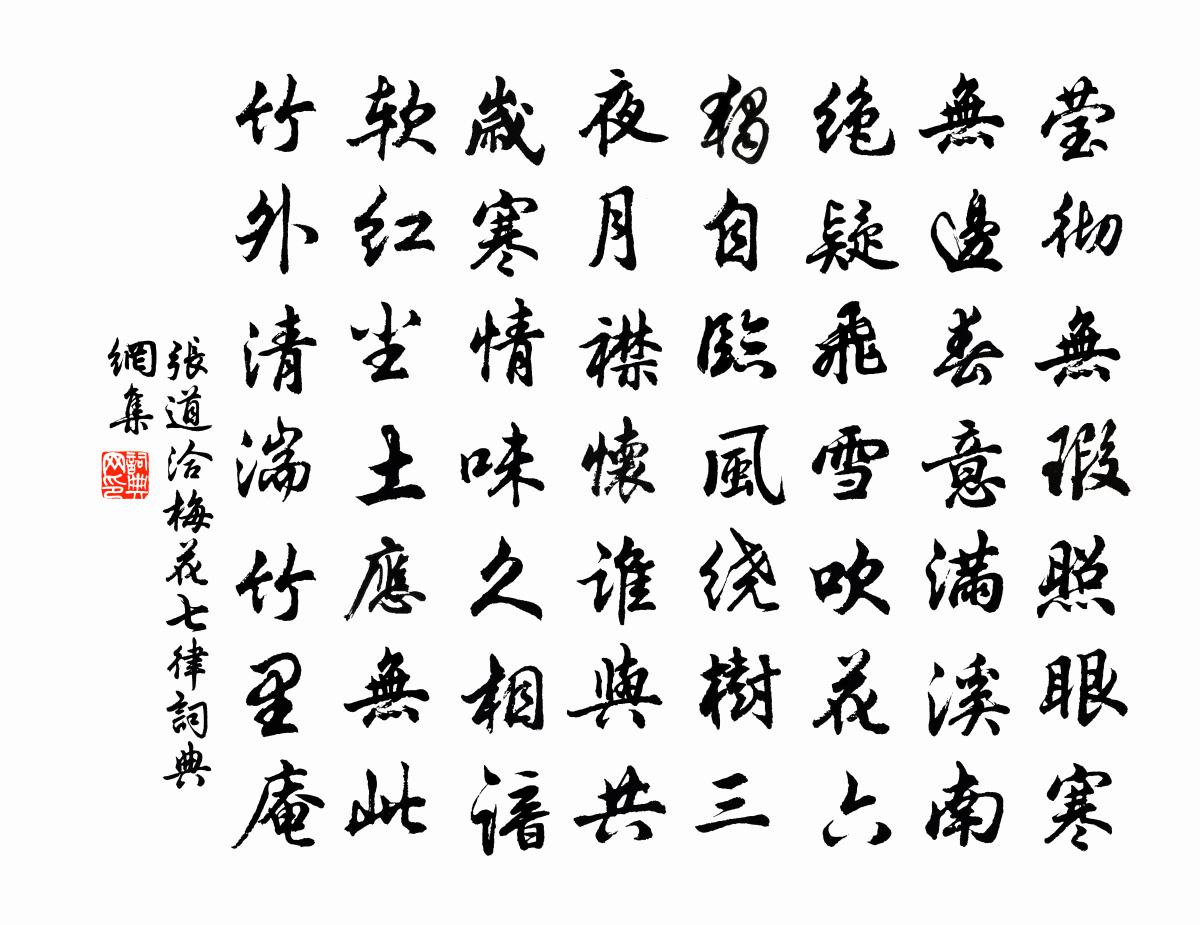 莹彻無瑕照眼寒
無邊春意满溪南
绝疑飛雪吹花六
獨自臨風绕樹三
夜月襟懷谁與共
歲寒情味久相谙
软红尘土應無此
竹外清湍竹里庵
張道洽梅花七律詞典
網集